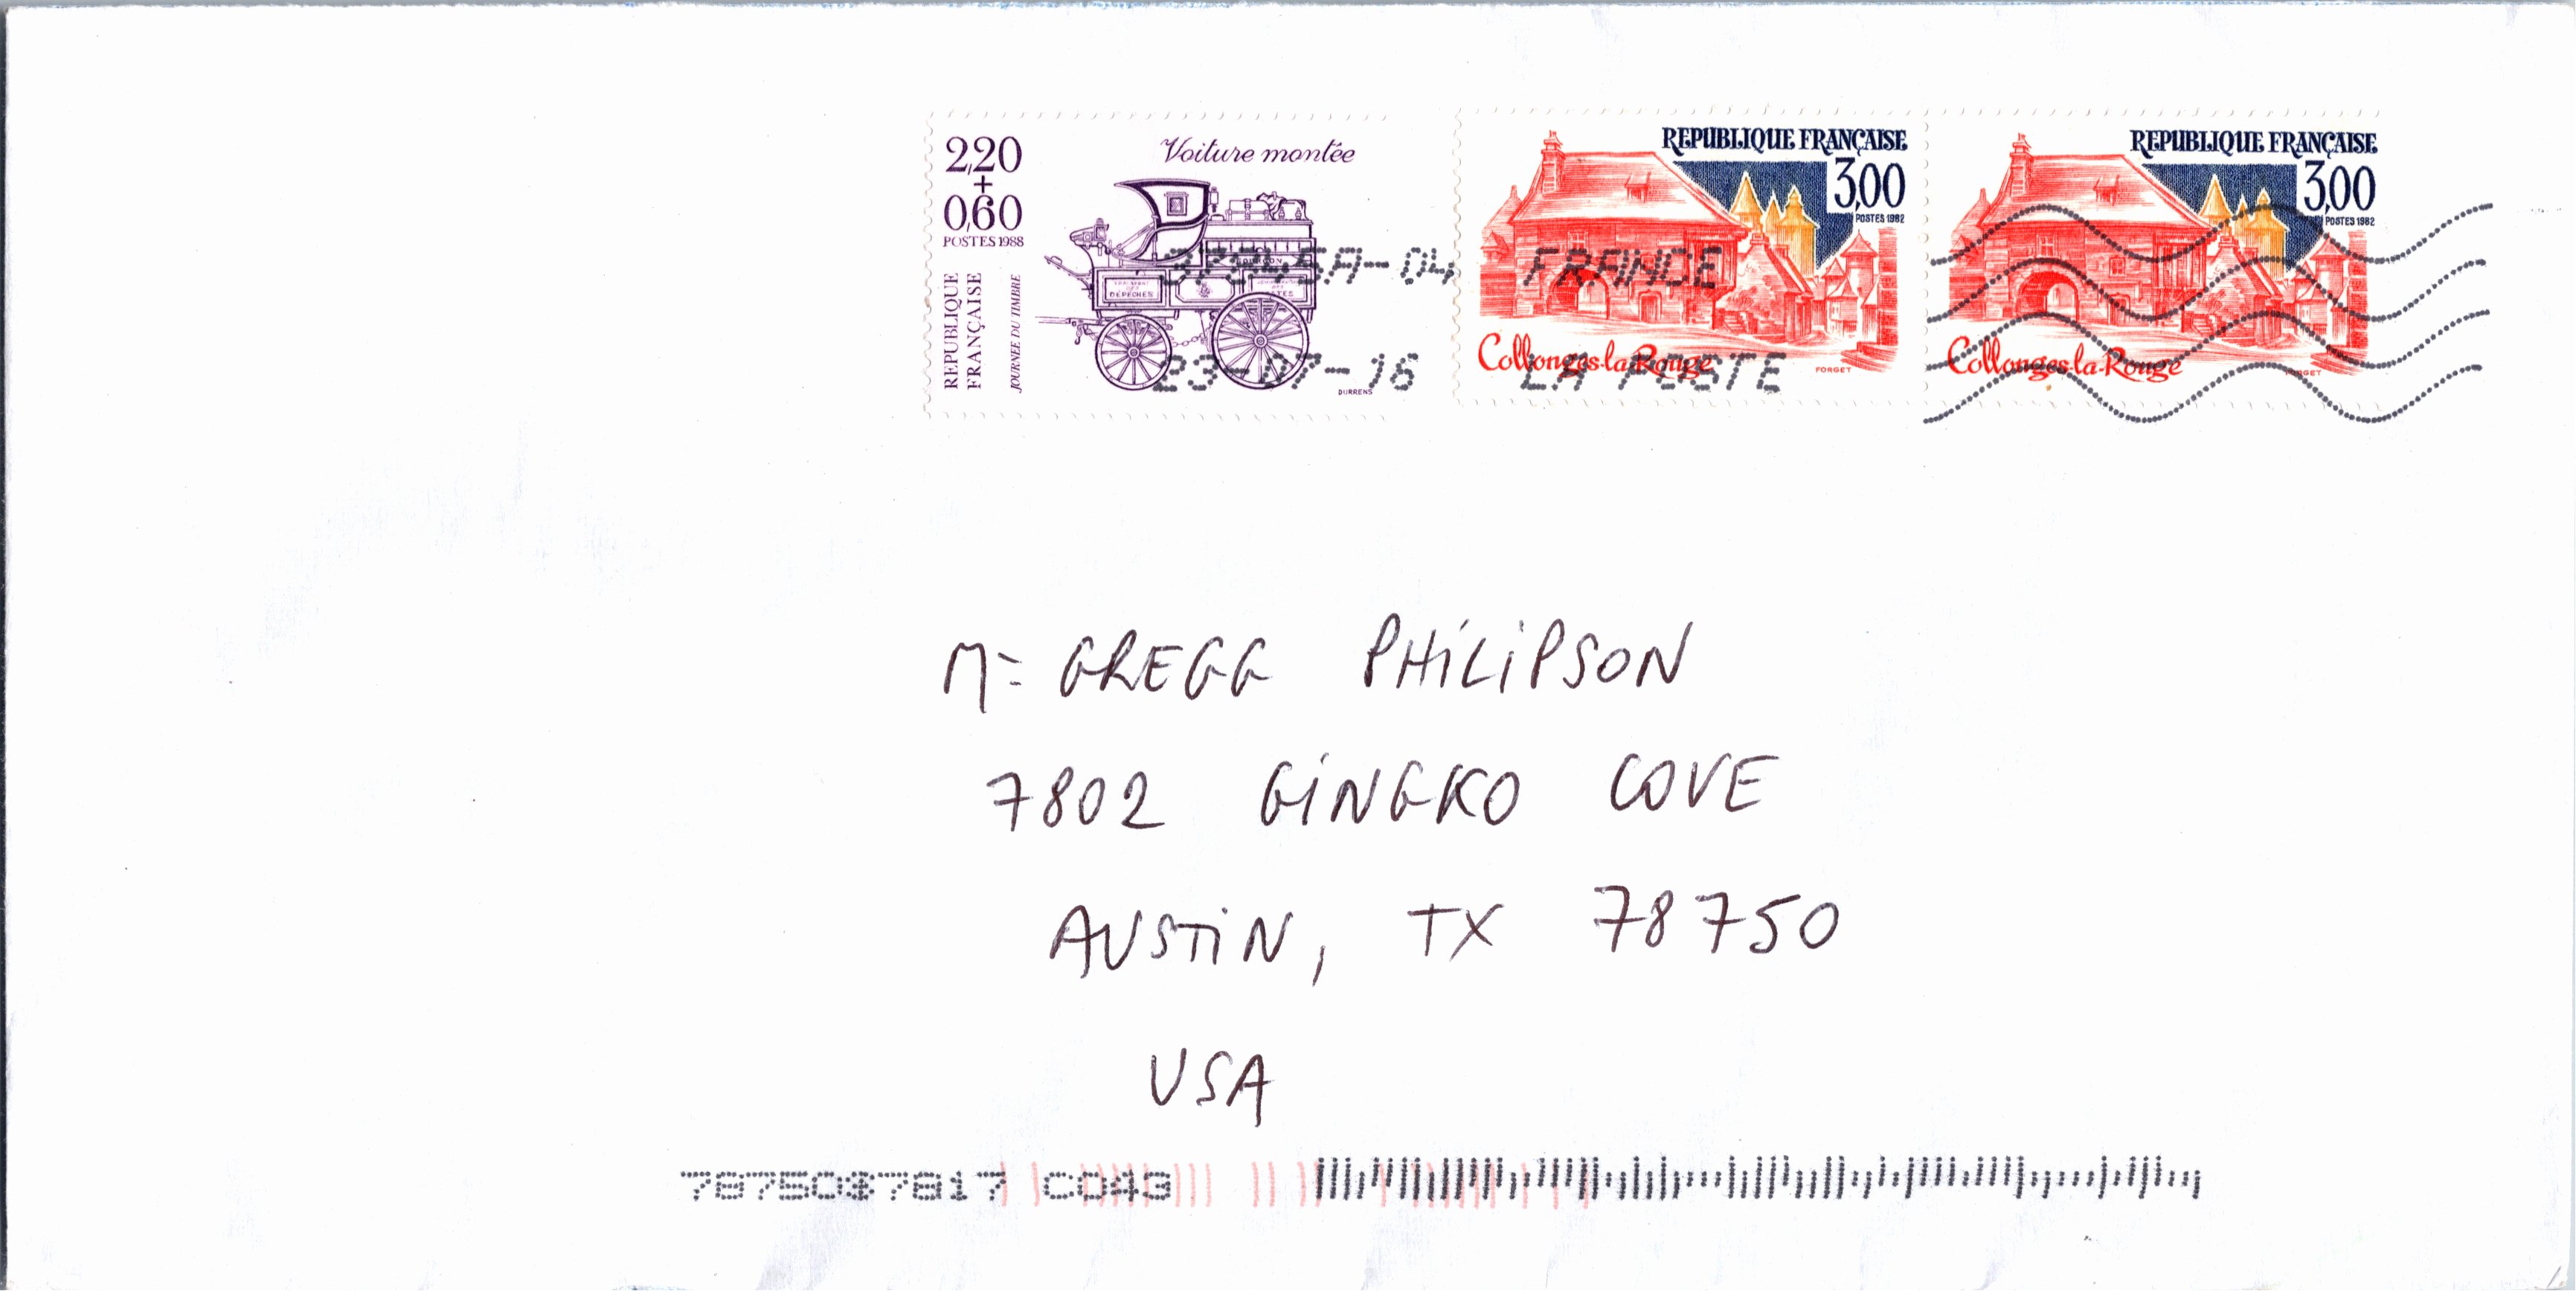 2,20
+
0,60
POSTES 1988
REPUBLIQUE
FRANÇAISE
JOURNEE DU TIMBRE
Voiture montée
DEPECHES
DURRENS
REPUBLIQUE FRANÇAISE
3,00
POSTES 1982
Collonges-la-Rouge
FORGET
REPUBLIQUE FRANÇAISE
3,00
POSTES 1982
Collonges-la-Rouge
FORGET
-04 FRANCE
23-07-16 LA POSTE
M= GREGG PHILIPSON
7802 GINGKO COVE
AUSTIN, TX 78750
USA
7817 C043